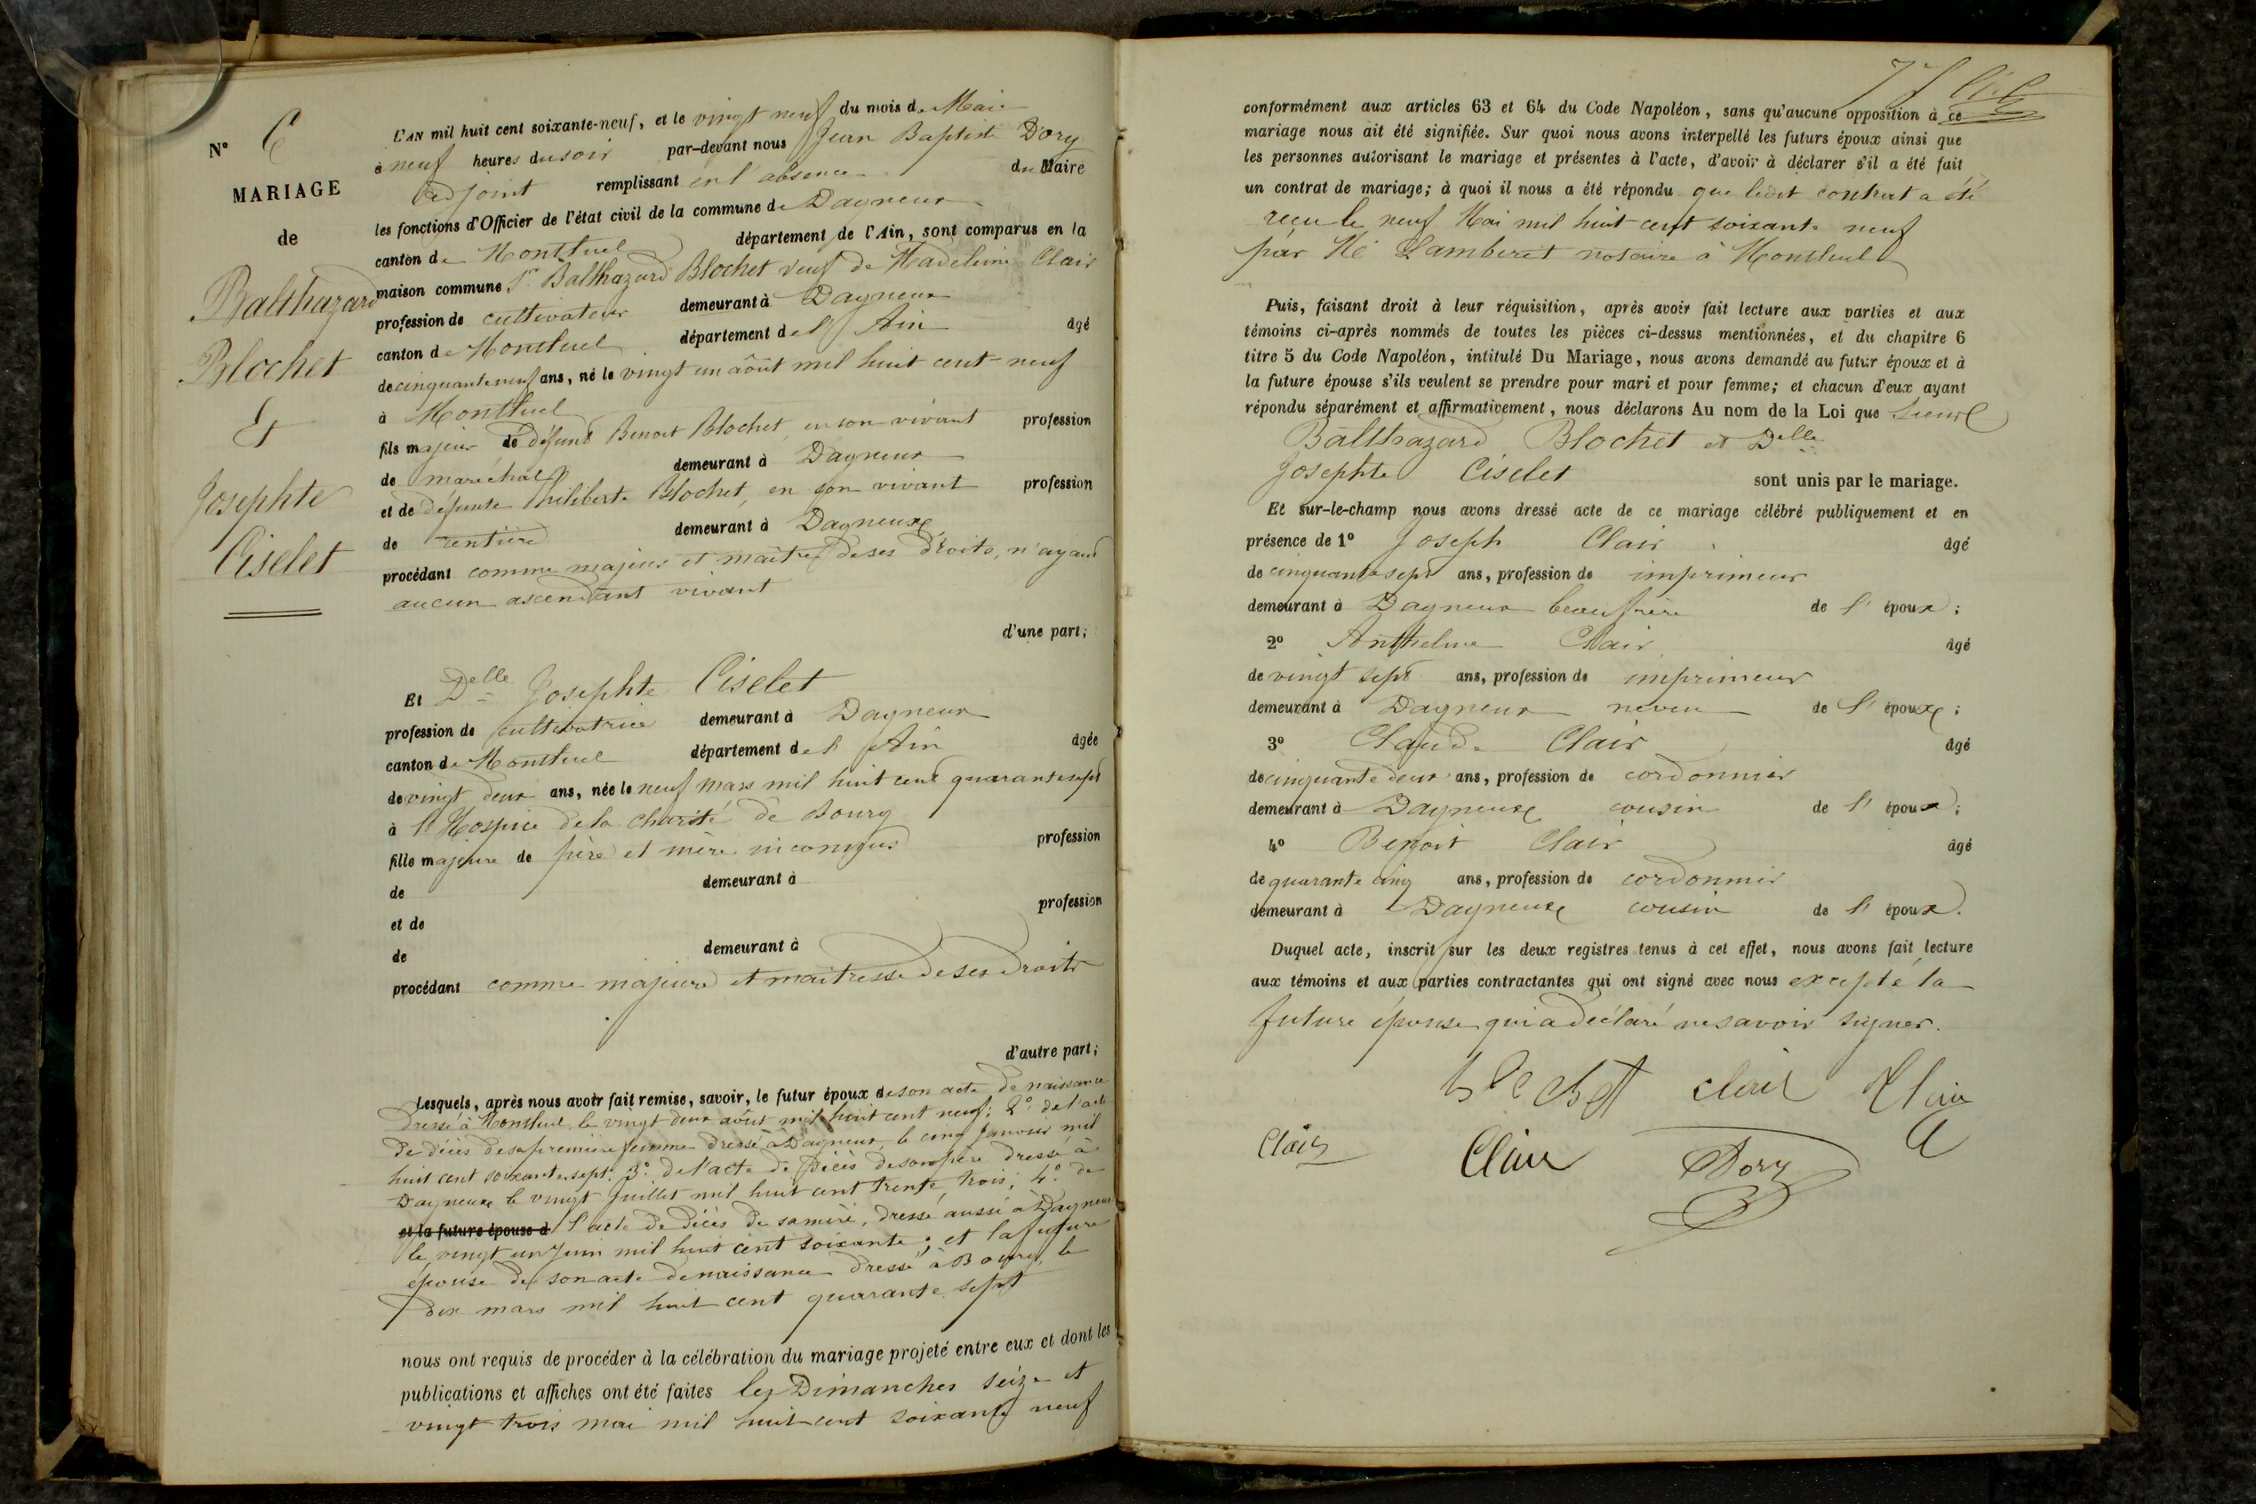 N° 6
MARIAGE
de
Balthazard
Blochet
Et
Josephte
Ciselet
L'AN mil huit cent soixante-neuf, et le vingt neuf du mois de Mai
à neuf heures du soir par-devant nous Jean Baptiste Dory
adjoint remplissant en l'absence du Maire
les fonctions d'Officier de l'état civil de la commune de Dagneux
canton de Montluel département de l'Ain, sont comparus en la
maison commune Sr Balthazard Blochet veuf de Madeleine Clair
profession de cultivateur demeurant à Dagneux
canton de Montluel département de l'Ain âgé
de cinquante neuf ans, né le vingt un août mil huit cent neuf
à Montluel
fils majeur de défunt Benoit Blochet, en son vivant profession
de maréchal demeurant à Dagneux
et de défunte Philiberte Blochet, en son vivant profession
de rentière demeurant à Dagneux
procédant comme majeur et maître de ses droits, n'ayant
aucun ascendant vivant
d'une part;
Et Delle Josephte Ciselet
profession de cultivatrice demeurant à Dagneux
canton de Montluel département de l'Ain âgée
de vingt deux ans, née le neuf mars mil huit cent quarante sept
à l'Hospice de la charité de Bourg
fille majeure de père et mère inconnus profession
de demeurant à
et de profession
de demeurant à
procédant comme majeure et maîtresse de ses droits
d'autre part;
Lesquels, après nous avoir fait remise, savoir, le futur époux de son acte de naissance
dressé à Montluel le vingt deux août mil huit cent neuf; 2° de l'acte
de décès de sa première femme dressé à Dagneux le cinq janvier mil
huit cent soixante sept; 3° de l'acte de décès de son père dressé à
Dagneux le vingt juillet mil huit cent trente trois; 4° de
et la future épouse d l'acte de décès de sa mère, dressé aussi à Dagneux
le vingt un juin mil huit cent soixante; et la future
épouse de son acte de naissance dressé à Bourg, le
dix mars mil huit cent quarante sept
nous ont requis de procéder à la célébration du mariage projeté entre eux et dont les
publications et affiches ont été faites les Dimanches seize et
vingt trois mai mil huit cent soixante neuf
conformément aux articles 63 et 64 du Code Napoléon, sans qu'aucune opposition à ce
mariage nous ait été signifiée. Sur quoi nous avons interpellé les futurs époux ainsi que
les personnes autorisant le mariage et présentes à l'acte, d'avoir à déclarer s'il a été fait
un contrat de mariage; à quoi il nous a été répondu que ledit contrat a été
reçu le neuf Mai mil huit cent soixante neuf
par Me Lamberet notaire à Montluel
Puis, faisant droit à leur réquisition, après avoir fait lecture aux parties et aux
témoins ci-après nommés de toutes les pièces ci-dessus mentionnées, et du chapitre 6
titre 5 du Code Napoléon, intitulé Du Mariage, nous avons demandé au futur époux et à
la future épouse s'ils veulent se prendre pour mari et pour femme; et chacun d'eux ayant
répondu séparément et affirmativement, nous déclarons Au nom de la Loi que Sieur
Balthazard Blochet et Delle
Josephte Ciselet sont unis par le mariage.
Et sur-le-champ nous avons dressé acte de ce mariage célébré publiquement et en
présence de 1° Joseph Clair âgé
de cinquante sept ans, profession de imprimeur
demeurant à Dagneux beau frère de l'époux;
2° Anthelme Clair âgé
de vingt sept ans, profession de imprimeur
demeurant à Dagneux neveu de l'époux;
3° Claude Clair âgé
de cinquante deux ans, profession de cordonnier
demeurant à Dagneux cousin de l'époux;
4° Benoit Clair âgé
de quarante cinq ans, profession de cordonnier
demeurant à Dagneux cousin de l'époux.
Duquel acte, inscrit sur les deux registres tenus à cet effet, nous avons fait lecture
aux témoins et aux parties contractantes qui ont signé avec nous excepté la
future épouse qui a déclaré ne savoir signer.
clair Clair
Clair Clair Dory